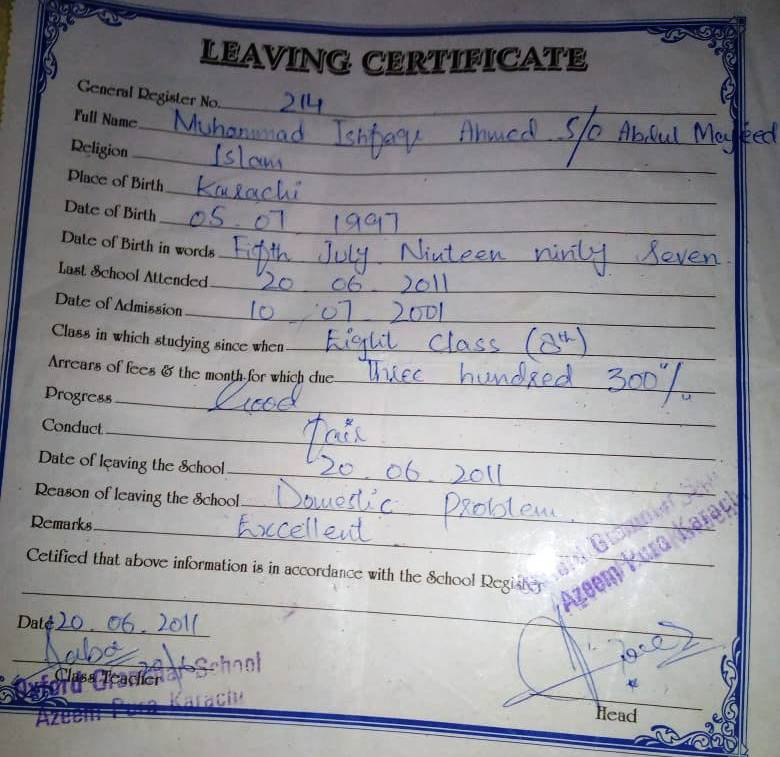 LEAVING CERTIFICATE
General Register No. 214
Full Name Muhammad Ishfaqe Ahmed S/O Abdul Mayeed
Religion Islam
Place of Birth Karachi
Date of Birth 05 - 07 1997
Date of Birth in words Fifth July Ninteen ninity Seven.
Last School Attended 20 06 2011
Date of Admission 10 - 07 - 2001
Class in which studying since when Eight Class (8th)
Arrears of fees & the month for which due Three hundred 300"/.
Progress Good
Conduct Fair
Date of leaving the School 20.06.2011
Reason of leaving the School Domestic Problem.
Remarks Excellent
Cetified that above information is in accordance with the School Register
Azeem Pura Karachi
Date 20.06.2011
Saba
Class Teacher
Oxford Grammar School
Azeem Pura Karachi
Head